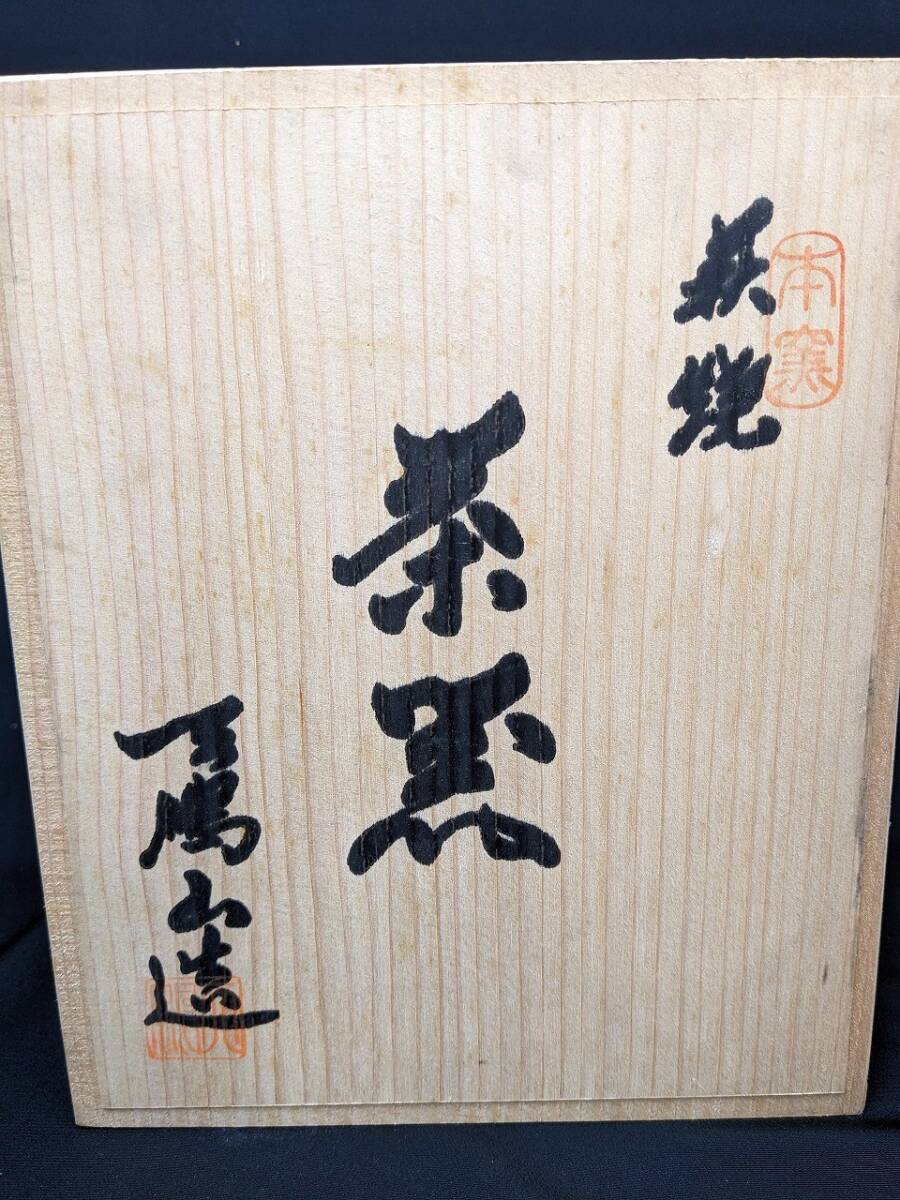 萩焼
本窯
茶器
天鵬山造